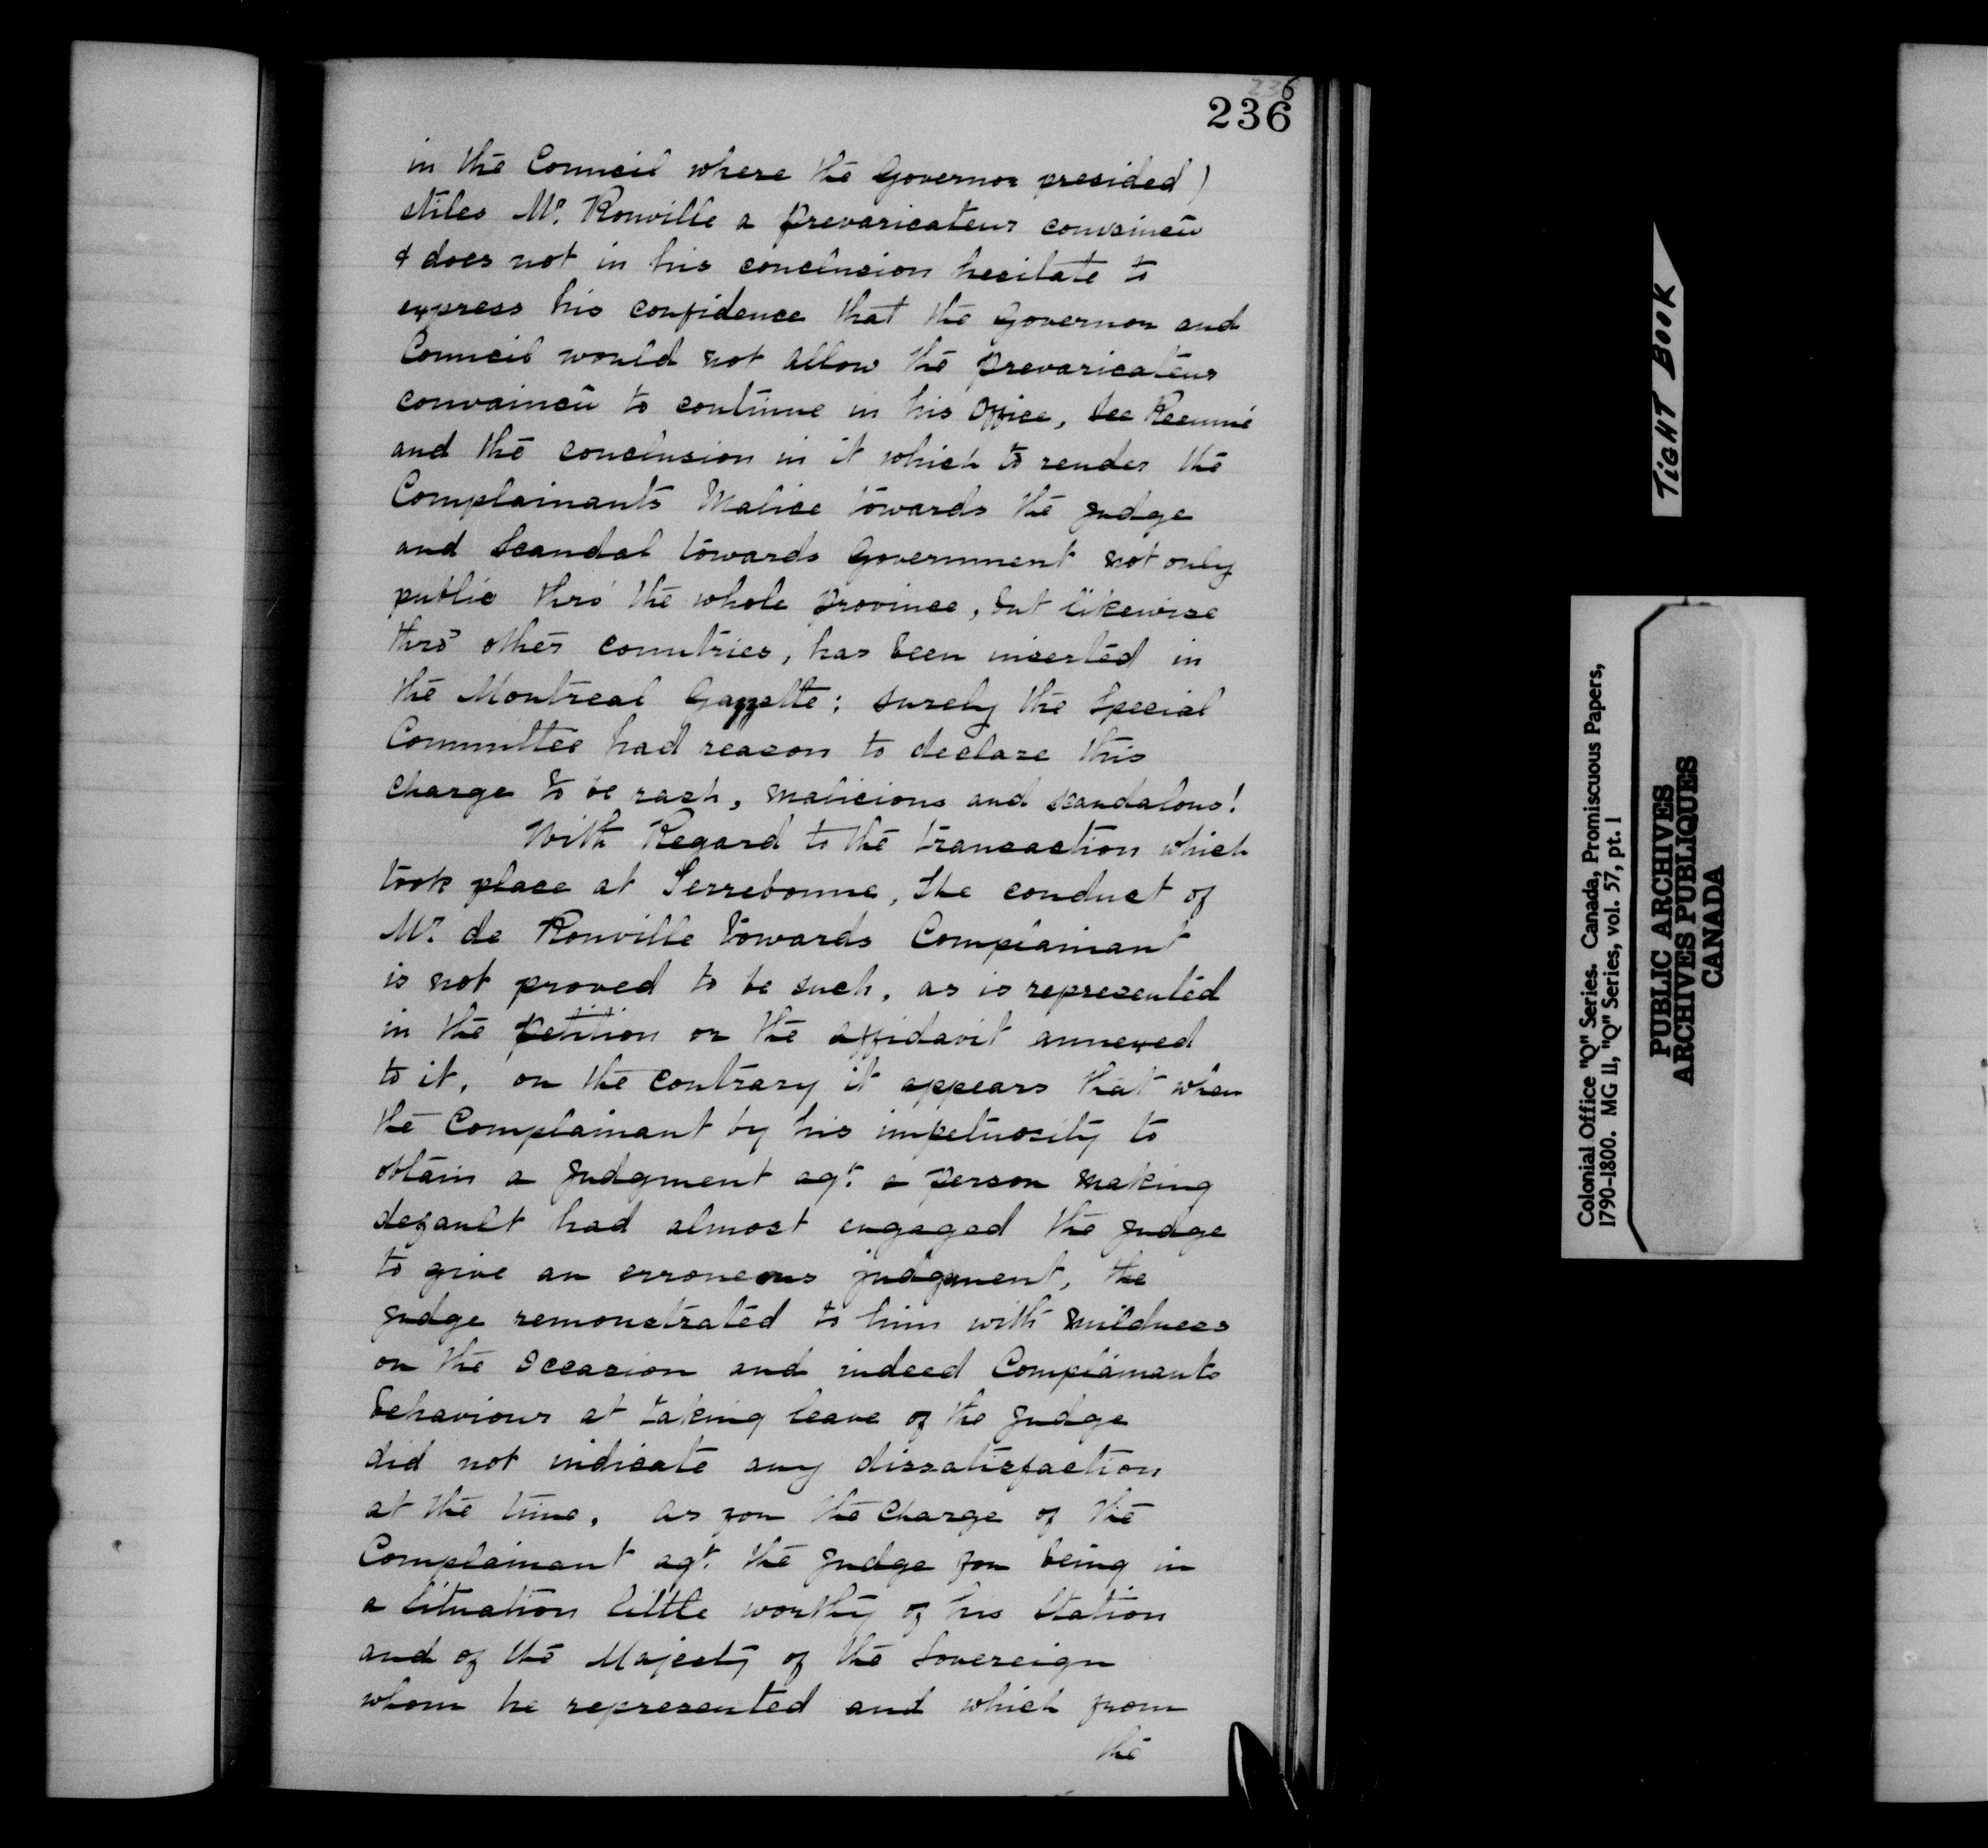 236
236
in the Council where the Governor presided)
stiles Mr. Rouville a prevaricateur convaincû
& does not in his conclusion hesitate to
express his confidence that the Governor and
Council would not allow the prevaricateur
convaincû to continue in his Office, See Resumé
and the conclusion in it which to render the
Complainants Malice towards the Judge
and Scandal towards Government not only
public thro' the whole province, but likewise
thro' other countries, has been inserted in
the Montreal Gazette; surely the Special
Committee had reason to declare this
charge to be rash, malicious and scandalous!
With Regard to the transaction which
took place at Terrebonne, the conduct of
Mr. de Rouville towards Complainant
is not proved to be such, as is represented
in the petition or the affidavit annexed
to it, on the contrary it appears that when
the Complainant by his impetuosity to
obtain a Judgment agt. a person making
default had almost engaged the Judge
to give an erroneous judgment, the
Judge remonstrated to him with mildness
on the Occasion and indeed Complainants
behaviour at taking leave of the Judge
did not indicate any dissatisfaction
at the time, as for the Charge of the
Complainant agt. the Judge for being in
a Situation little worthy of his Station
and of the Majesty of the Sovereign
whom he represented and which from
the
TiGHT BOOK
Colonial Office "Q" Series. Canada, Promiscuous Papers,
1790-1800. MG 11, "Q" Series, vol. 57, pt. 1
PUBLIC ARCHIVES
ARCHIVES PUBLIQUES
CANADA